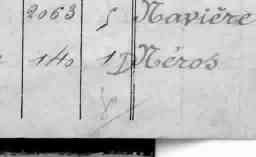 2063 5 Navière
140 1 D Néros